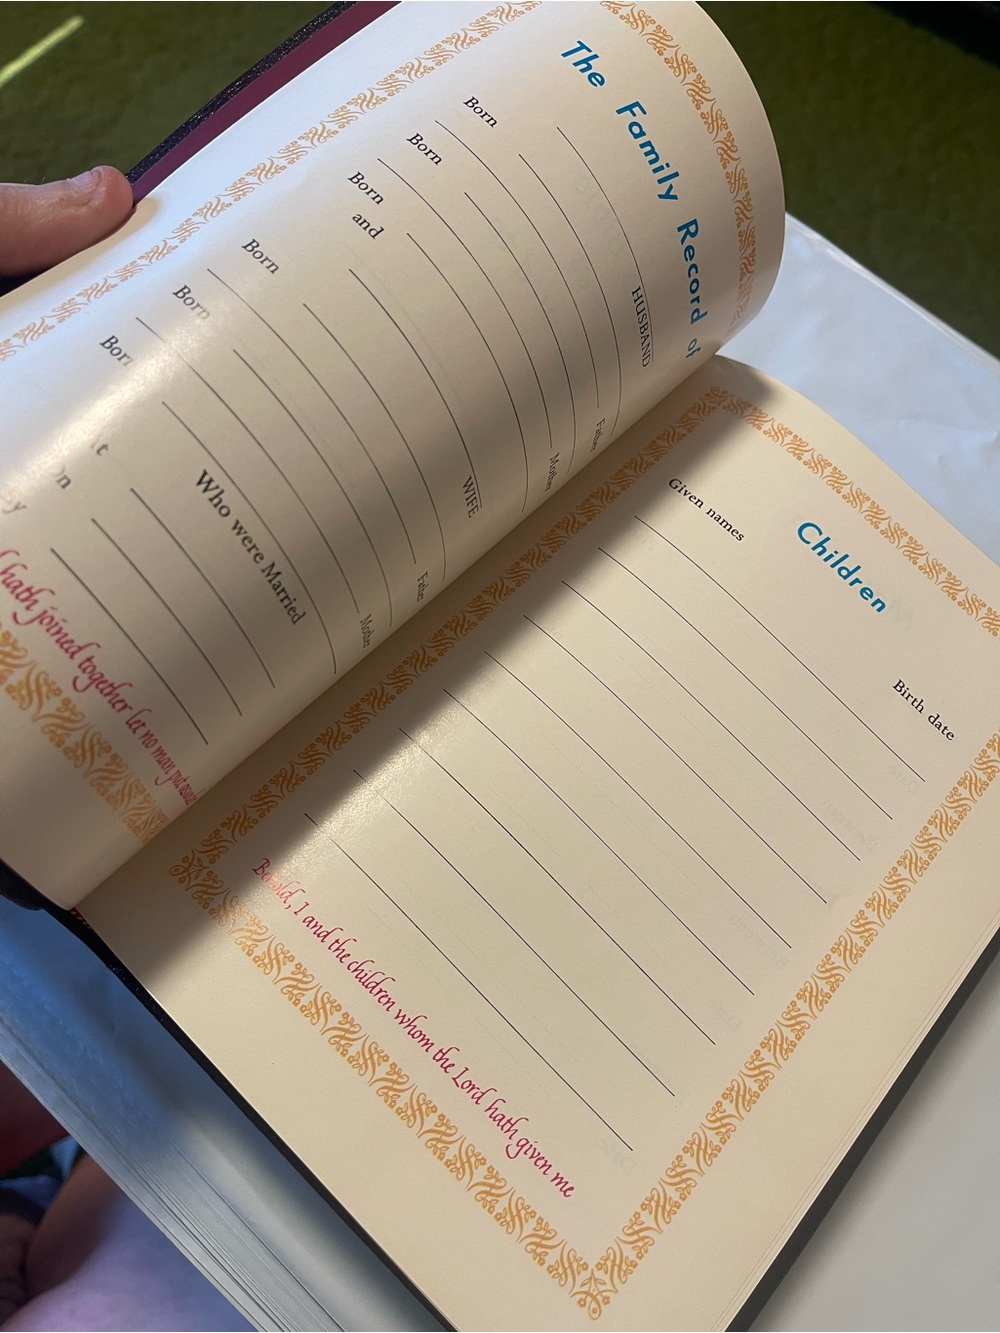 The Family Record of
HUSBAND
Born
Father
Born
Mother
Born
and
WIFE
Born
Father
Born
Mother
Born
Who were Married
hath joined together let no man put
Children
Given names Birth date
Behold, I and the children whom the Lord hath given me